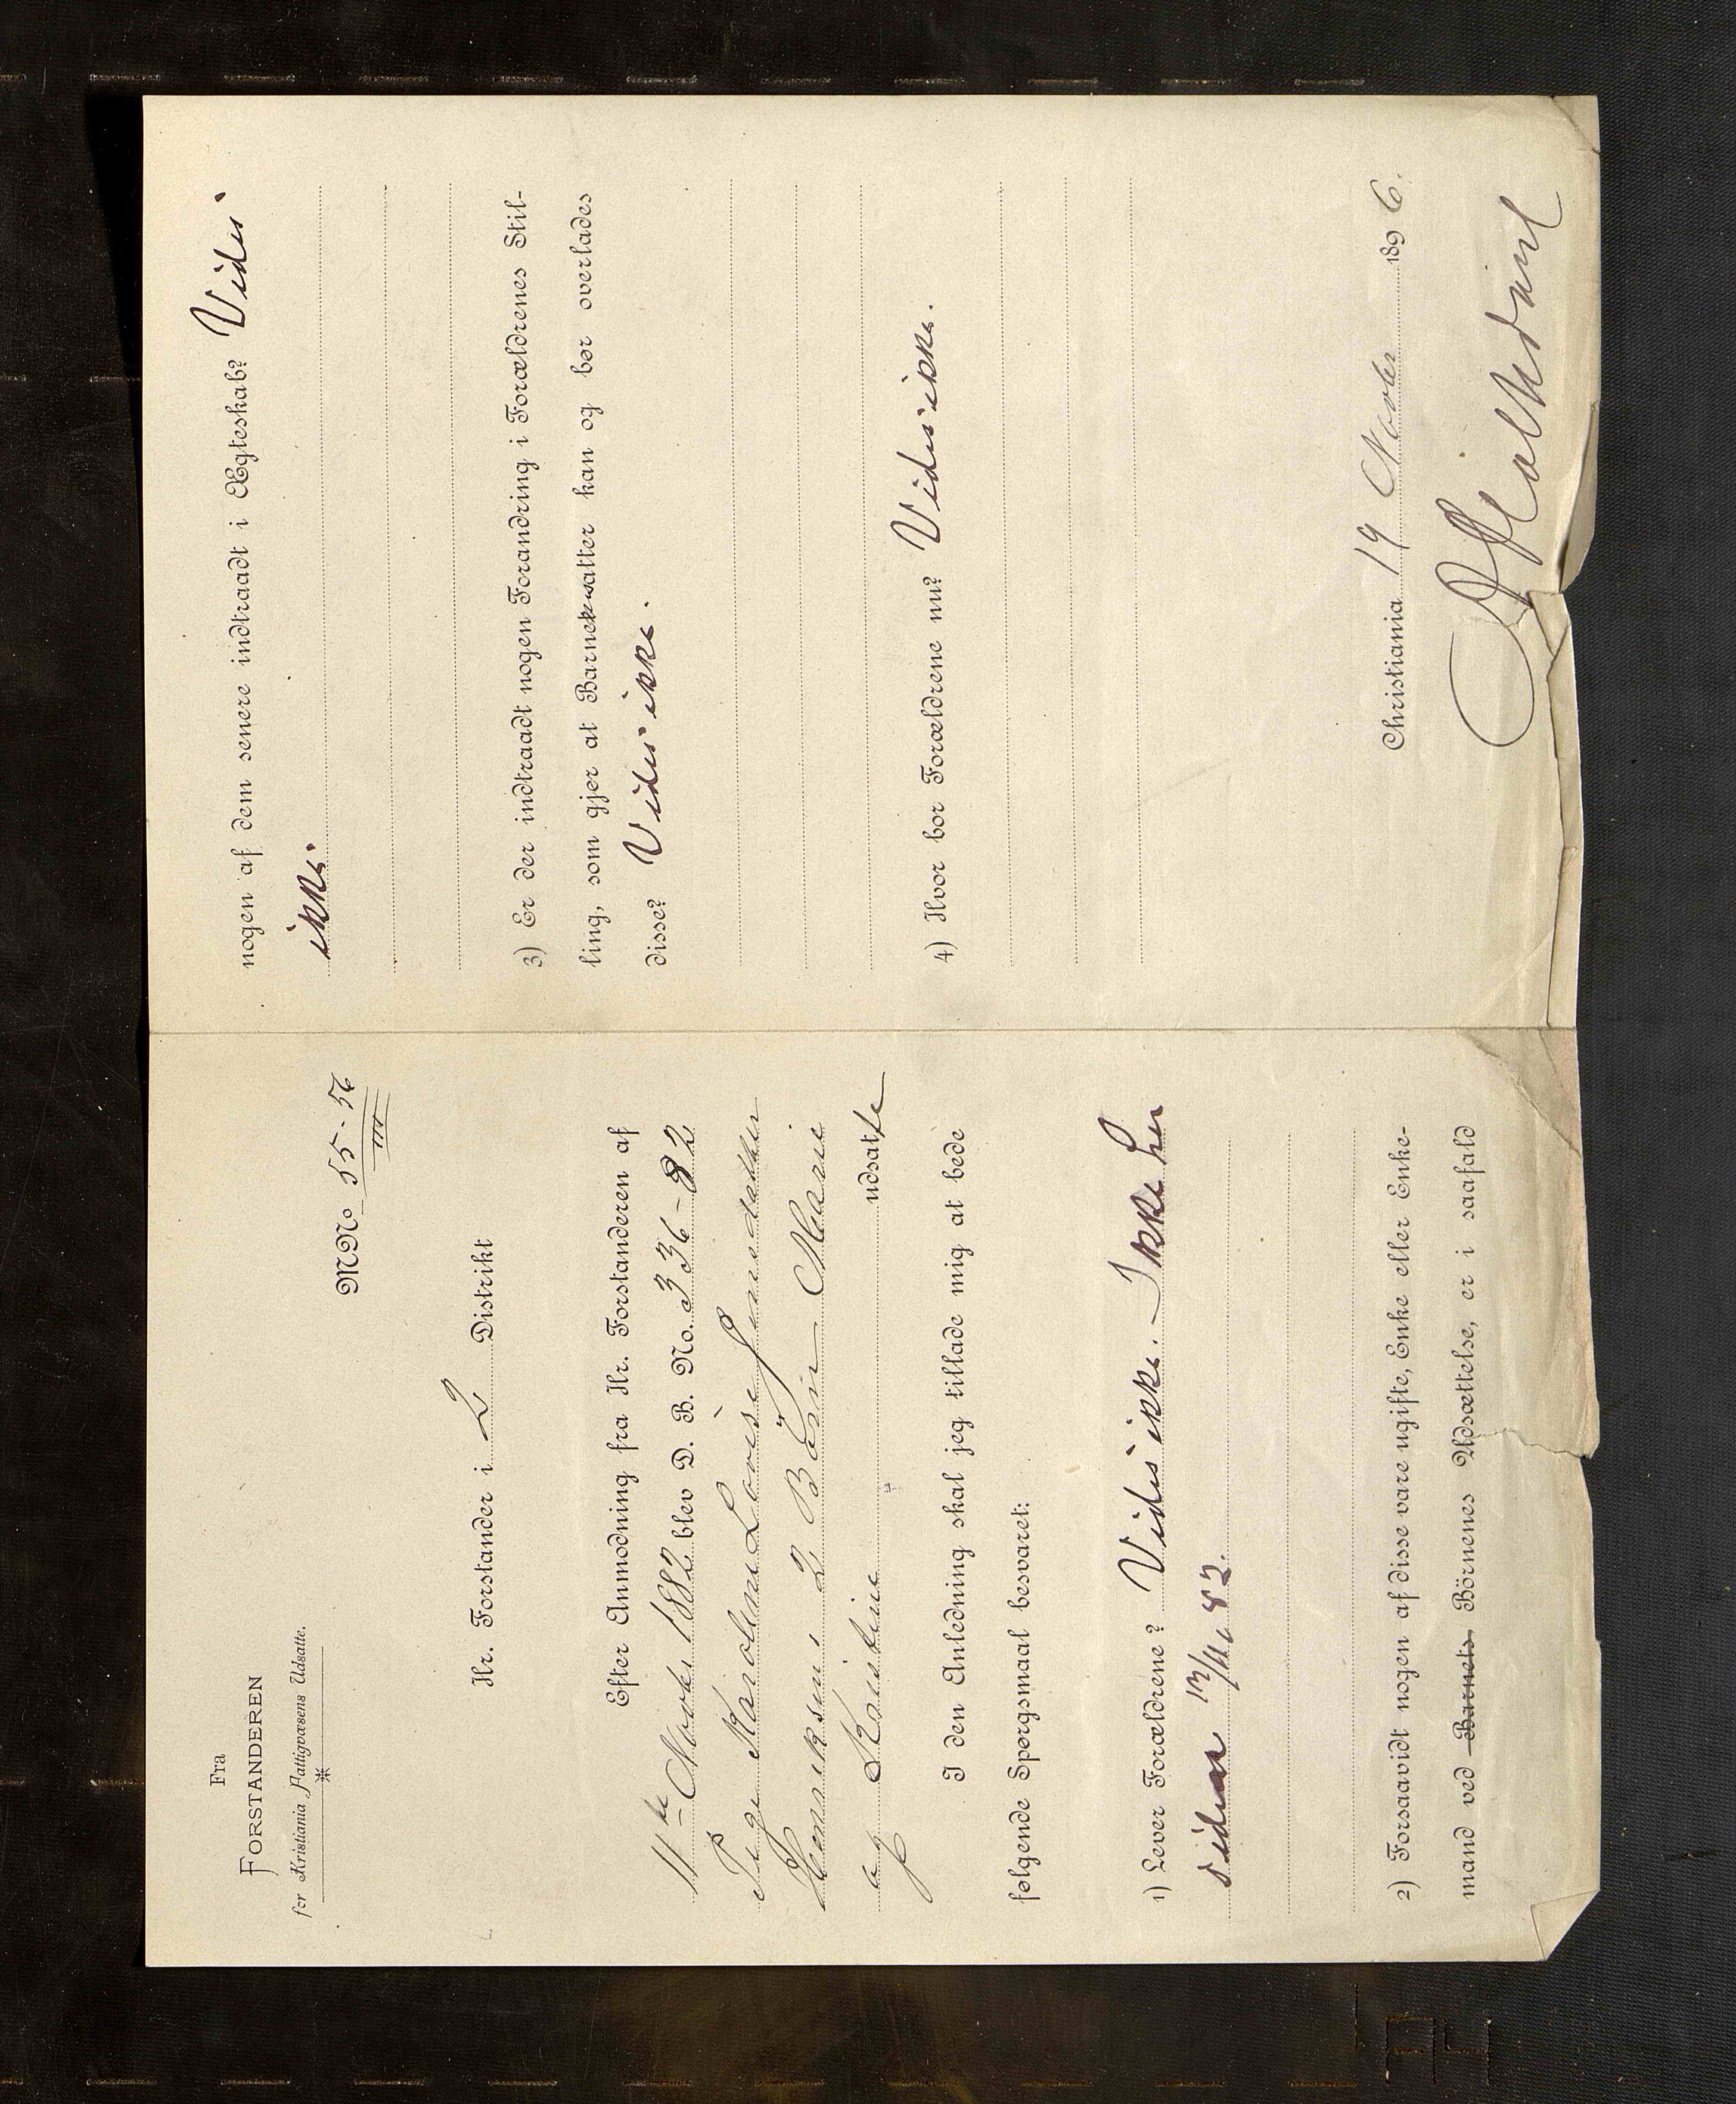 Fra
FORSTANDEREN
for Kristiania Fattigvæsens Udsatte.
MNo 55-56
Hr. Forstander i 2 Distrikt
Efter Anmodning fra Hr. Forstanderen af
11te Novbr 1882 blev D. B. No. 336-82
Pige Karoline Lovise Gunnsdatter
2 Börn Marie
og Kristine udsatte
I den Anledning skal jeg tillade mig at bede
følgende Spørgsmaal besvaret:
1) Lever Forældrene? Vides ikke. Ikke her
siden 13/11 82.
2) Forsaavidt nogen af disse vare ugifte, Enke eller Enke-
mand ved Barnets Börnenes Udsættelse, er i saafald
nogen af dem senere indtraadt i Ægteskab? Vides
ikke.
3) Er der indtraadt nogen Forandring i Forældrenes Stil-
ling, som gjør at Barnet atter kan og bør overlades
disse? Vides ikke.
4) Hvor bor Forældrene nu? Vides ikke.
Christiania 19 Novbr 1896.